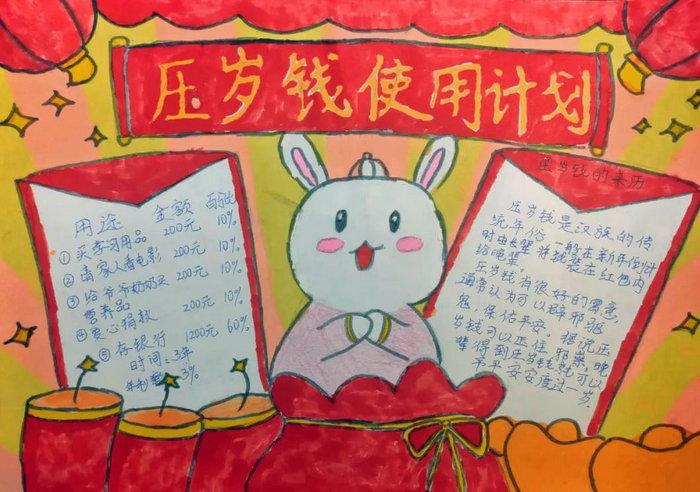 压岁钱使用计划
用途 金额 百分比
①买学习用品 200元 10%
②请家人看电影 200元 10%
③给爷爷奶奶买 200元 10%
营养品
④爱心捐款 200元 10%
⑤存银行 1200元 60%
时间:3年
3%
压岁钱的来历
压岁钱是汉族的传
统年俗,一般在新年倒计
时由长辈将钱装在红包内
给晚辈。
压岁钱有很好的寓意,
通常认为可以辟邪驱
鬼,保佑平安。据说压
岁钱可以压住邪祟,晚
辈得到压岁钱就可以
平平安安度过一岁。